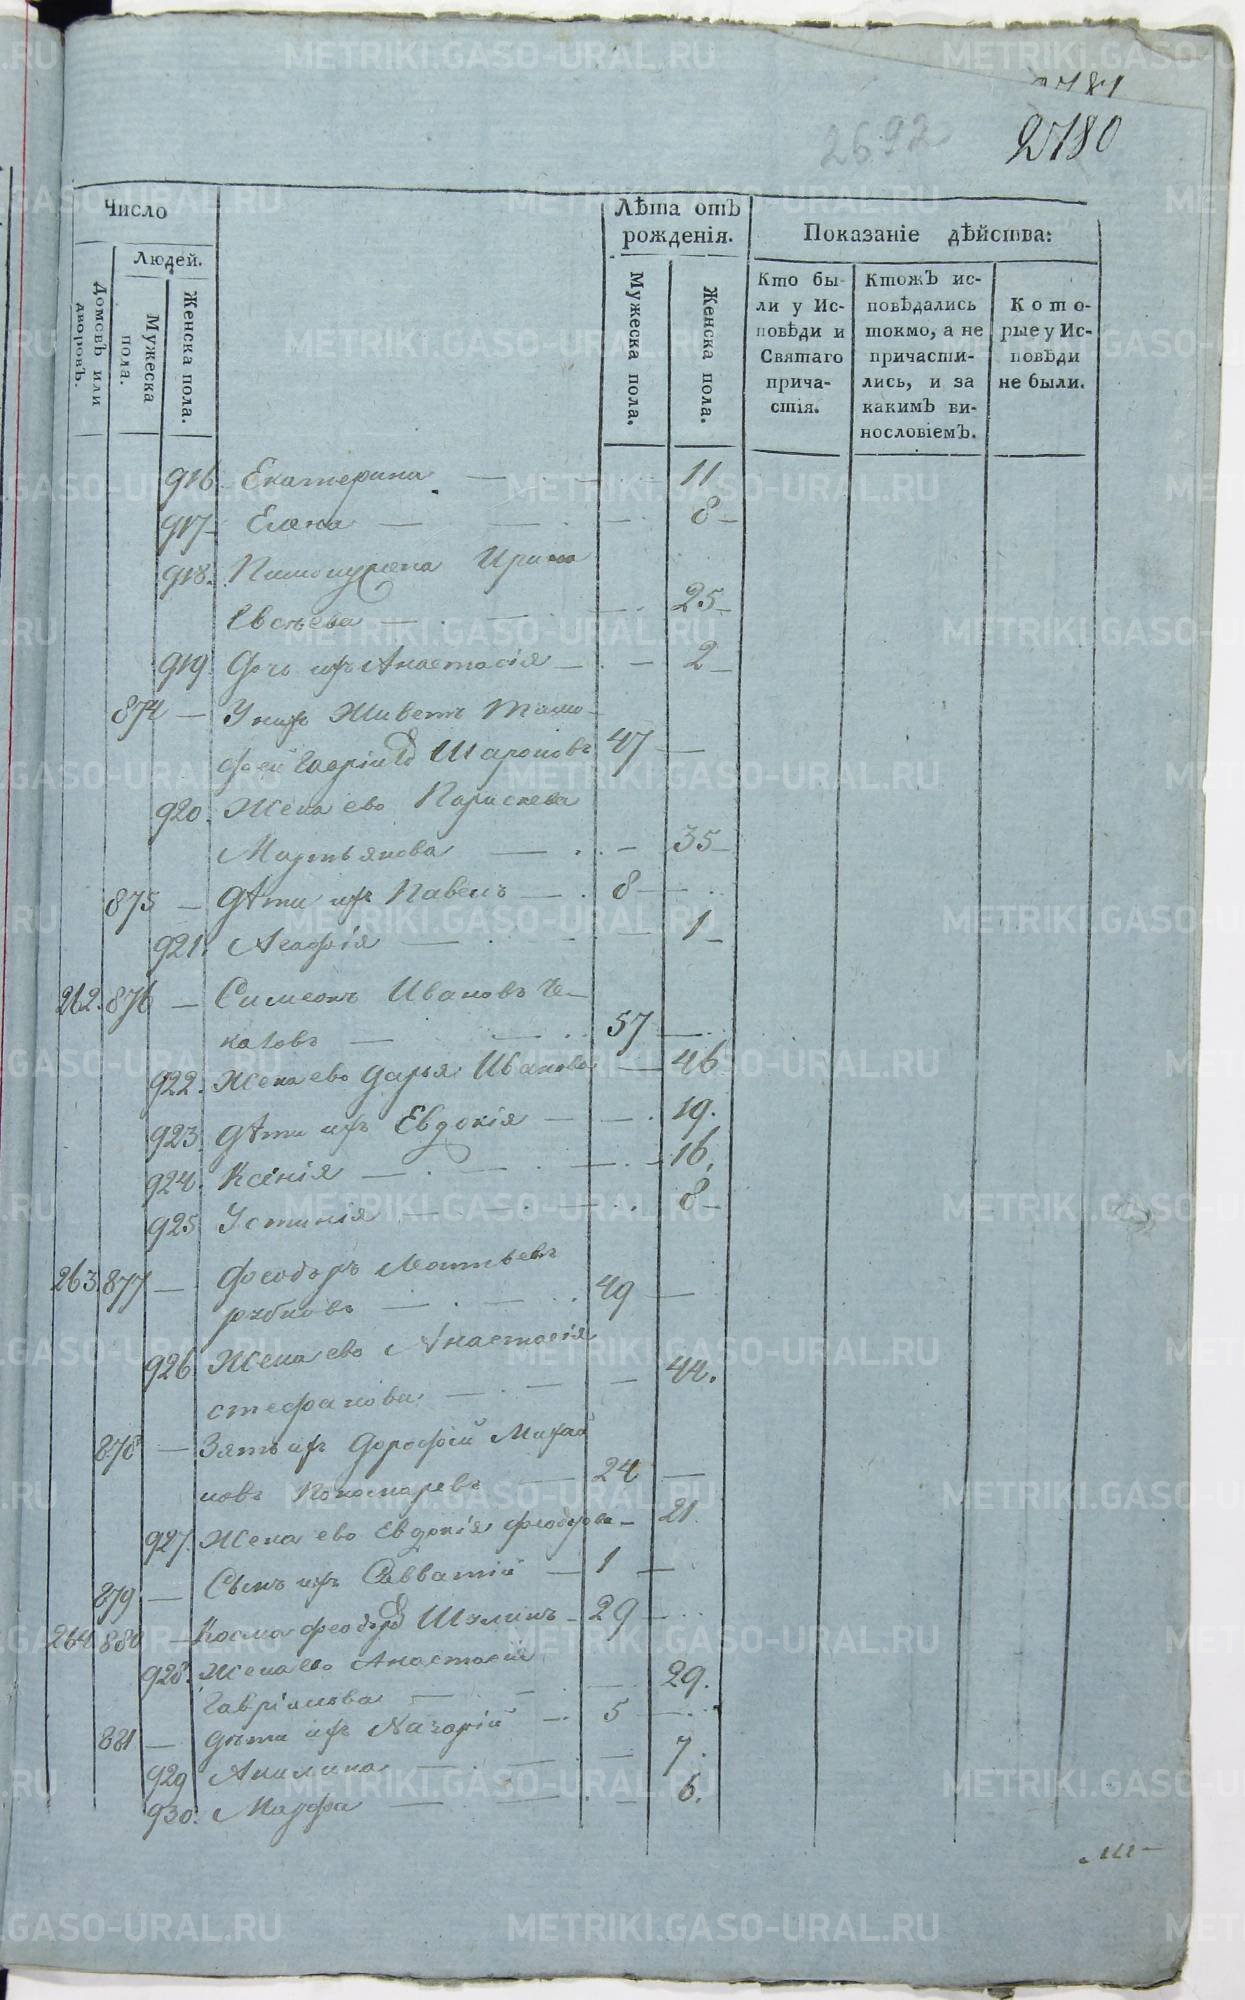 2781
2780
2692
Число
Людей.
Домовъ или дворовъ.
Мужеска пола.
Женска пола.
Лѣта отъ
рожденія.
Мужеска пола.
Женска пола.
Показаніе дѣйства:
Кто бы-
ли у Ис-
повѣди и
Святаго
прича-
стія.
Ктожъ ис-
повѣдались
токмо, а не
причасти-
лись, и за
какимъ ви-
нословіемъ.
Кото-
рые у Ис-
повѣди
не были.
916 Екатерина 11
917 Елена 8
918. Ирина
Евсѣева 25
919 Дочь ихъ Анастасія 2
874 У нихъ живетъ Тимо-
фей Гавріил Шароновъ 47
920. Жена ево Параскева
Мартьянова 35
875 Дѣти ихъ Павелъ 8
921. Агафія 1
262. 876 Симеонъ Ивановъ Че-
каловъ 57
922. Жена ево Дарья Иванова 46
923. Дѣти ихъ Евдокія 19.
924. Ксенія 16.
925 Устинія 8
263. 877 Феодоръ Леонтьевъ
49
926 Жена ево Анастасія
Стефанова 44.
878 Зять ихъ Дорофей Михай
ловъ Пономаревъ 24
927. Жена ево Евдокія Феодорова 21.
879 Сынъ ихъ Савватій 1
264 880 Косма Феодор Шалинъ 29
928. Жена ево Анастасія
Гавріилова 29.
881 Дѣти ихъ Назарій 5
929 Акилина 7.
930. Марфа 6.
METRIKI.GASO-URAL.RU